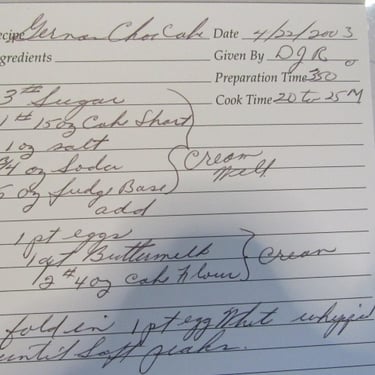 ecipe German Choc Cake Date 4/22/2003
gredients Given By DJR
Preparation Time 350°
3# Sugar Cook Time 20 to 25 M
1# 15oz Cake Short
1oz salt
3/4 oz Soda Cream
5 oz fudge Base Melt
add
1 pt eggs
1qt Buttermilk Cream
2# 4oz Cake Flour
fold in 1 pt egg Whit whipped
until Soft peaks.